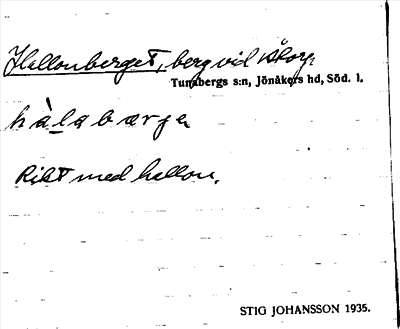 Hallonberget, berg vid Åtorp
Tunabergs s:n, Jönåkers hd, Söd. l.
hàlabærjen
Rikt med hallon.
STIG JOHANSSON 1935.